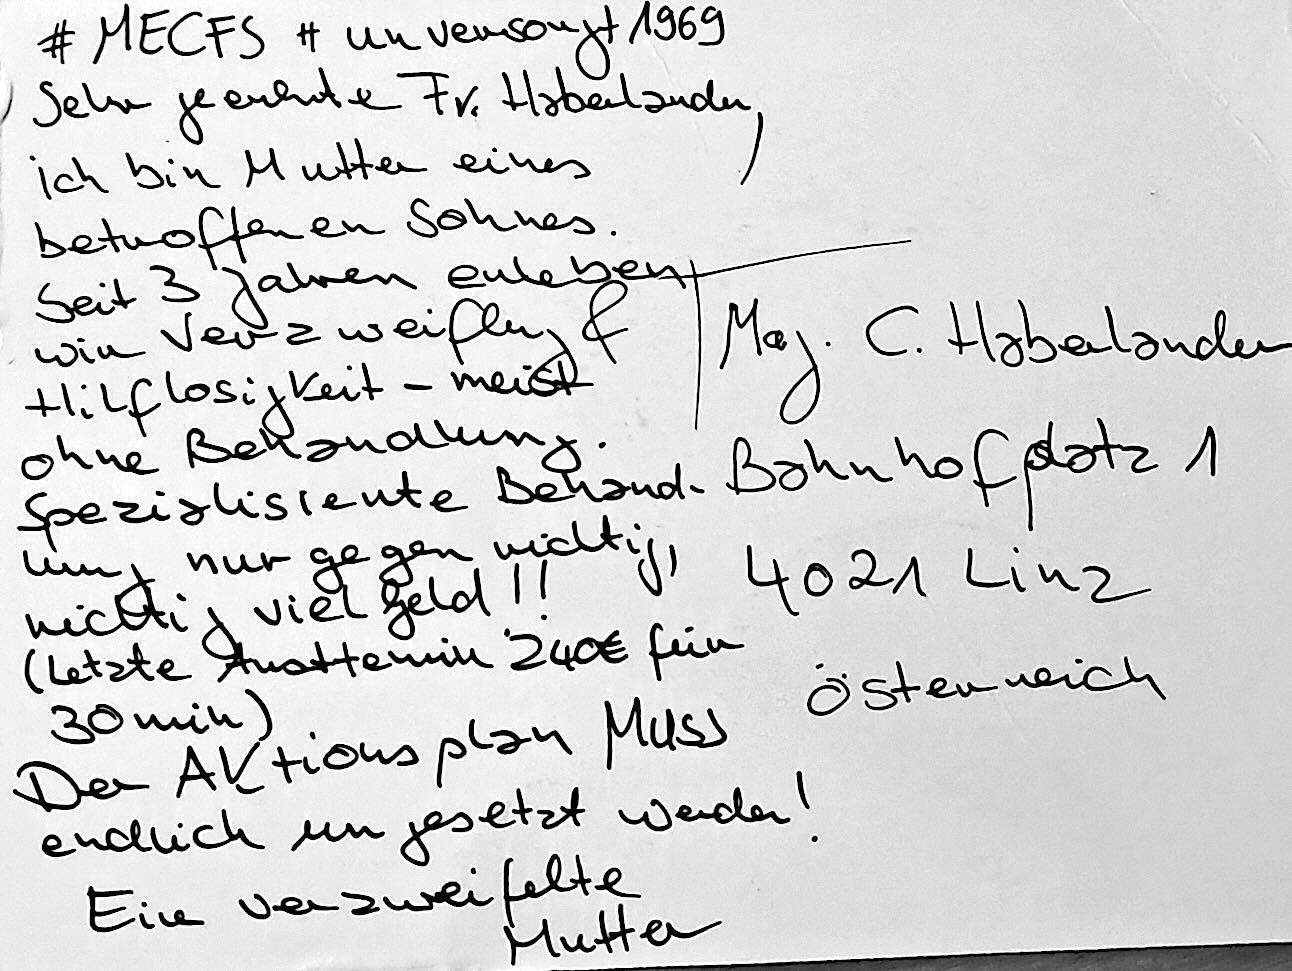 # MECFS # unversorgt 1969
Sehr geehrte Fr. Haberlander,
ich bin Mutter eines
betroffenen Sohnes.
Seit 3 Jahren erleben
wir Verzweiflung &
Hilflosigkeit - meist
ohne Behandlung.
Spezialisierte Behand-
lung nur gegen richtig,
richtig viel Geld!!
(letzte Arzttermin 240€ für
30 min)
Der Aktionsplan MUSS
endlich umgesetzt werden!
Eine verzweifelte
Mutter
Mag. C. Haberlander
Bahnhofplatz 1
4021 Linz
Österreich